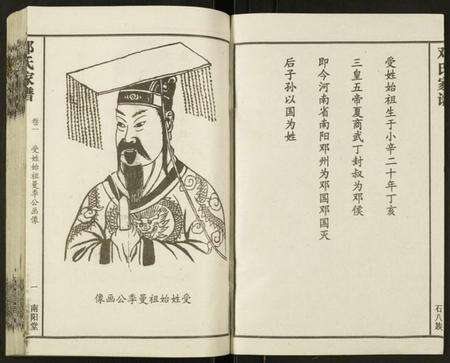 邓氏家谱
石八族
受姓始祖生于小辛二十年丁亥
三皇五帝夏商武丁封叔为邓侯
即今河南省南阳邓州为邓国邓国灭
后子孙以国为姓
受姓始祖曼季公画像
邓氏家谱
卷一
受姓始祖曼季公画像
一
南阳堂